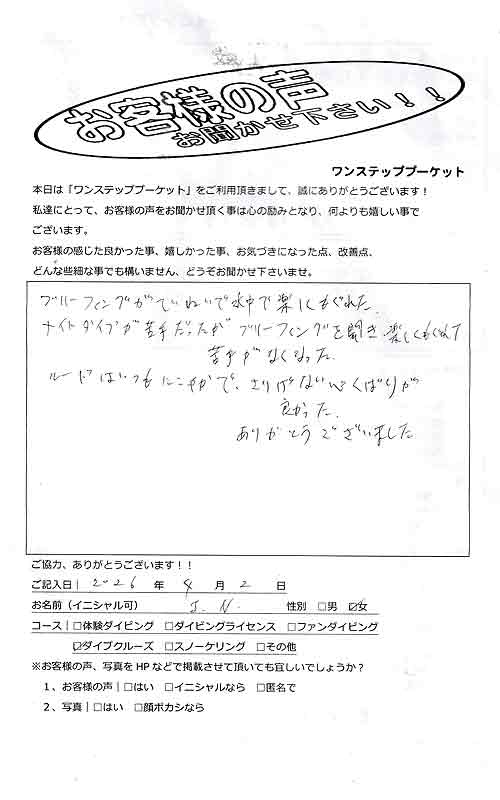 お客様の声
お聞かせ下さい！！
ワンステッププーケット
本日は「ワンステッププーケット」をご利用頂きまして、誠にありがとうございます！
私達にとって、お客様の声をお聞かせ頂く事は心の励みとなり、何よりも嬉しい事で
ございます。
お客様の感じた良かった事、嬉しかった事、お気づきになった点、改善点、
どんな些細な事でも構いません、どうぞお聞かせ下さいませ。
ブリーフィングがていねいで水中で楽しくもぐれた。
ナイトダイブが苦手だったがブリーフィングを聞き楽しくもぐれて
苦手がなくなった。
ルードはいつもにこやかで、さりげない心くばりが
良かった。
ありがとうございました
ご協力、ありがとうございます！！
ご記入日｜2026 年 4 月 2 日
お名前（イニシャル可） J.N. 性別 □男 ☑女
コース｜□体験ダイビング □ダイビングライセンス □ファンダイビング
☑ダイブクルーズ □スノーケリング □その他
※お客様の声、写真をHPなどで掲載させて頂いても宜しいでしょうか？
１、お客様の声｜□はい □イニシャルなら □匿名で
２、写真｜□はい □顔ボカシなら